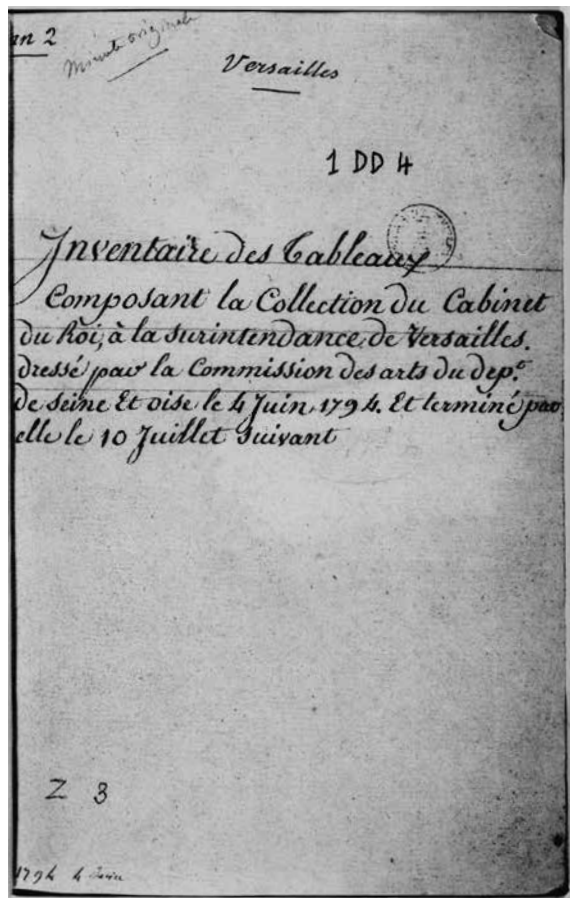 an 2
Minute originale
Versailles
1 DD 4
Inventaire des Tableaux
Composant la Collection du Cabinet
du Roi, à la surintendance de Versailles.
dressé par la Commission des arts du dep.t
de seine Et oise le 4 Juin 1794. Et terminé par
elle le 10 Juillet suivant
Z 3
1794 4 Juin